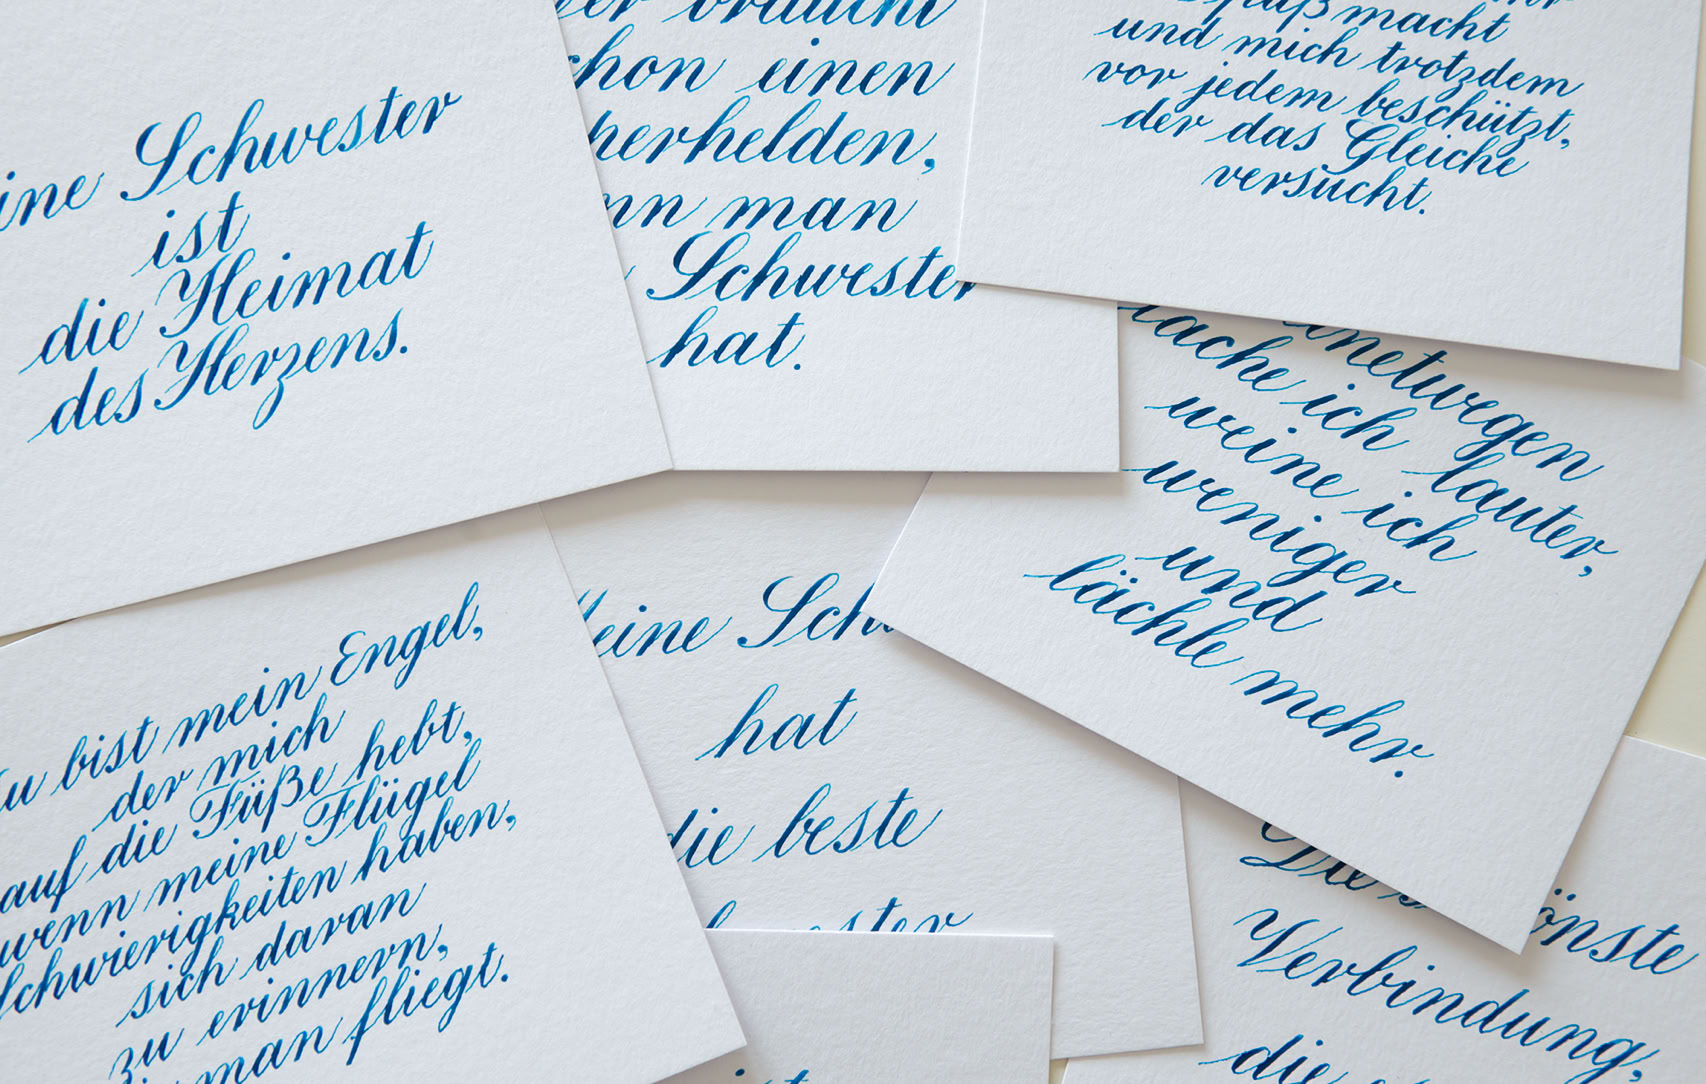 ine Schwester
ist
die Heimat
des Herzens.
er braucht
chon einen
perhelden,
nn man
Schwester
hat.
Spaß macht
und mich trotzdem
vor jedem beschützt,
der das Gleiche
versucht.
inetwegen
lache ich lauter,
weine ich
weniger
und
lächle mehr.
u bist mein Engel,
der mich
auf die Füße hebt,
wenn meine Flügel
Schwierigkeiten haben,
sich daran
zu erinnern,
man fliegt.
eine Sch
hat
die beste
ester
ist
Die önste
Verbindung,
die